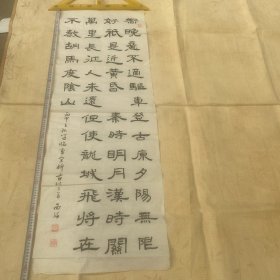 向晚意不適驅車登古原夕陽無限
好祇是近黃昏秦時明月漢時關
萬里長征人未還但使龍城飛將在
不教胡馬度陰山